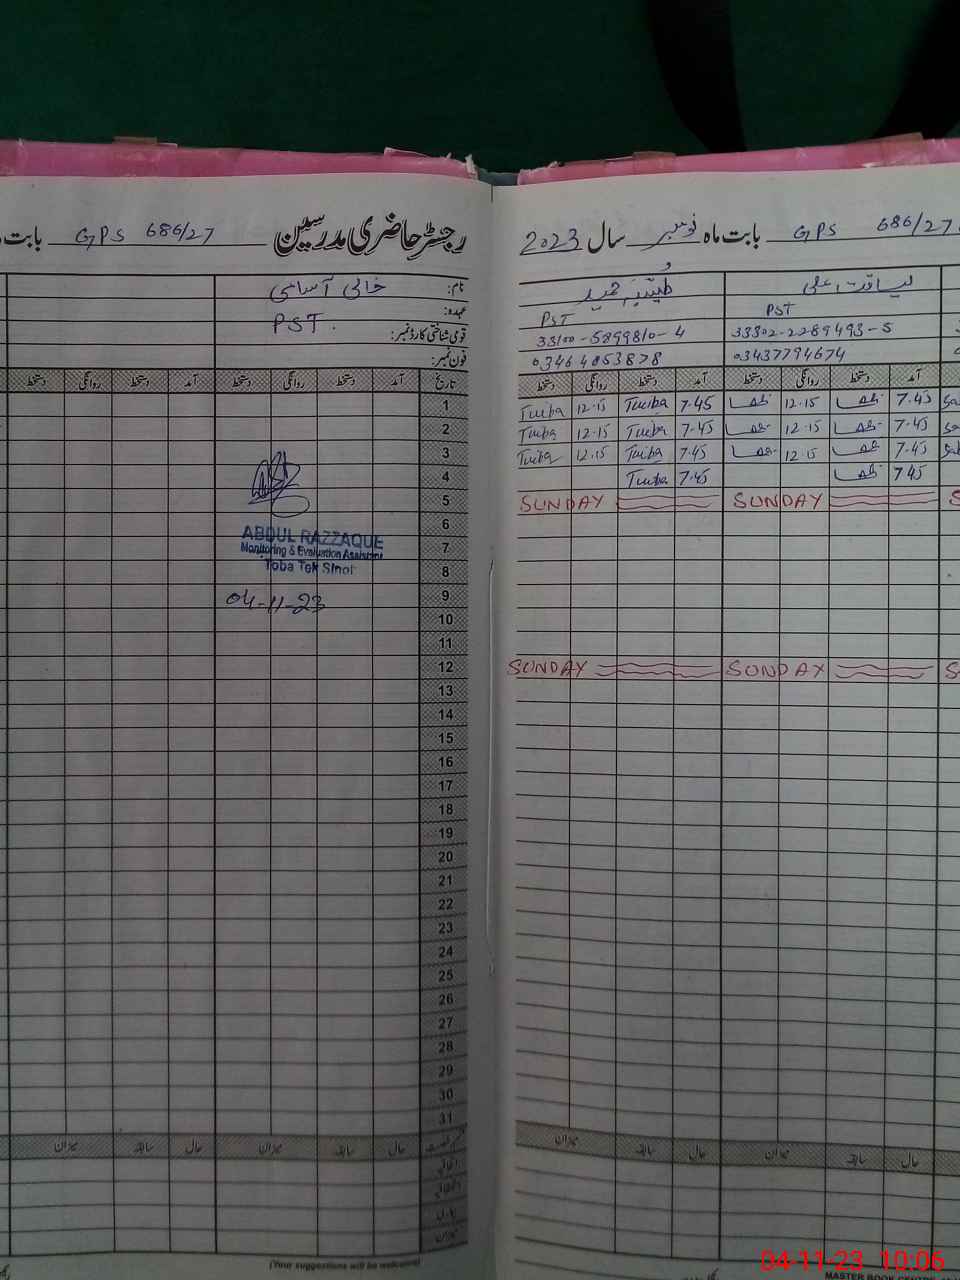 رجسٹر حاضری مدرسین GPS 686/27 بابت
2023 سال نومبر بابت ماہ GPS 686/27
نام: خالی آسامی
عہدہ: PST.
قومی شناختی کارڈ نمبر:
فون نمبر:
طیبہ حمید
PST
33100-5899810-4
03464853878
لیاقت علی
PST
33302-2289493-5
03437794674
تاریخ آمد دستخط روانگی دستخط آمد دستخط روانگی دستخط
آمد دستخط روانگی دستخط آمد دستخط روانگی دستخط
1 Tuiba 12.15 Tuiba 7.45 12.15 7.45
2 Tuiba 12.15 Tuiba 7.45 12.15 7.45
3 Tuiba 12.15 Tuiba 7.45 12.15 7.45
4 Tuiba 7.45 7.45
5 SUNDAY SUNDAY
6
7
8
9
10
11
12 SUNDAY SUNDAY
13
14
15
16
17
18
19
20
21
22
23
24
25
26
27
28
29
30
31
ABDUL RAZZAQUE
Monitoring & Evaluation Assistant
Toba Tek Singh
04-11-23
حال سابقہ میزان حال سابقہ میزان
حال سابقہ میزان حال سابقہ میزان
اتفاقی
میزان
(Your suggestions will be welcomed)
MASTER BOOK CENTRE
04-11-23 10:06